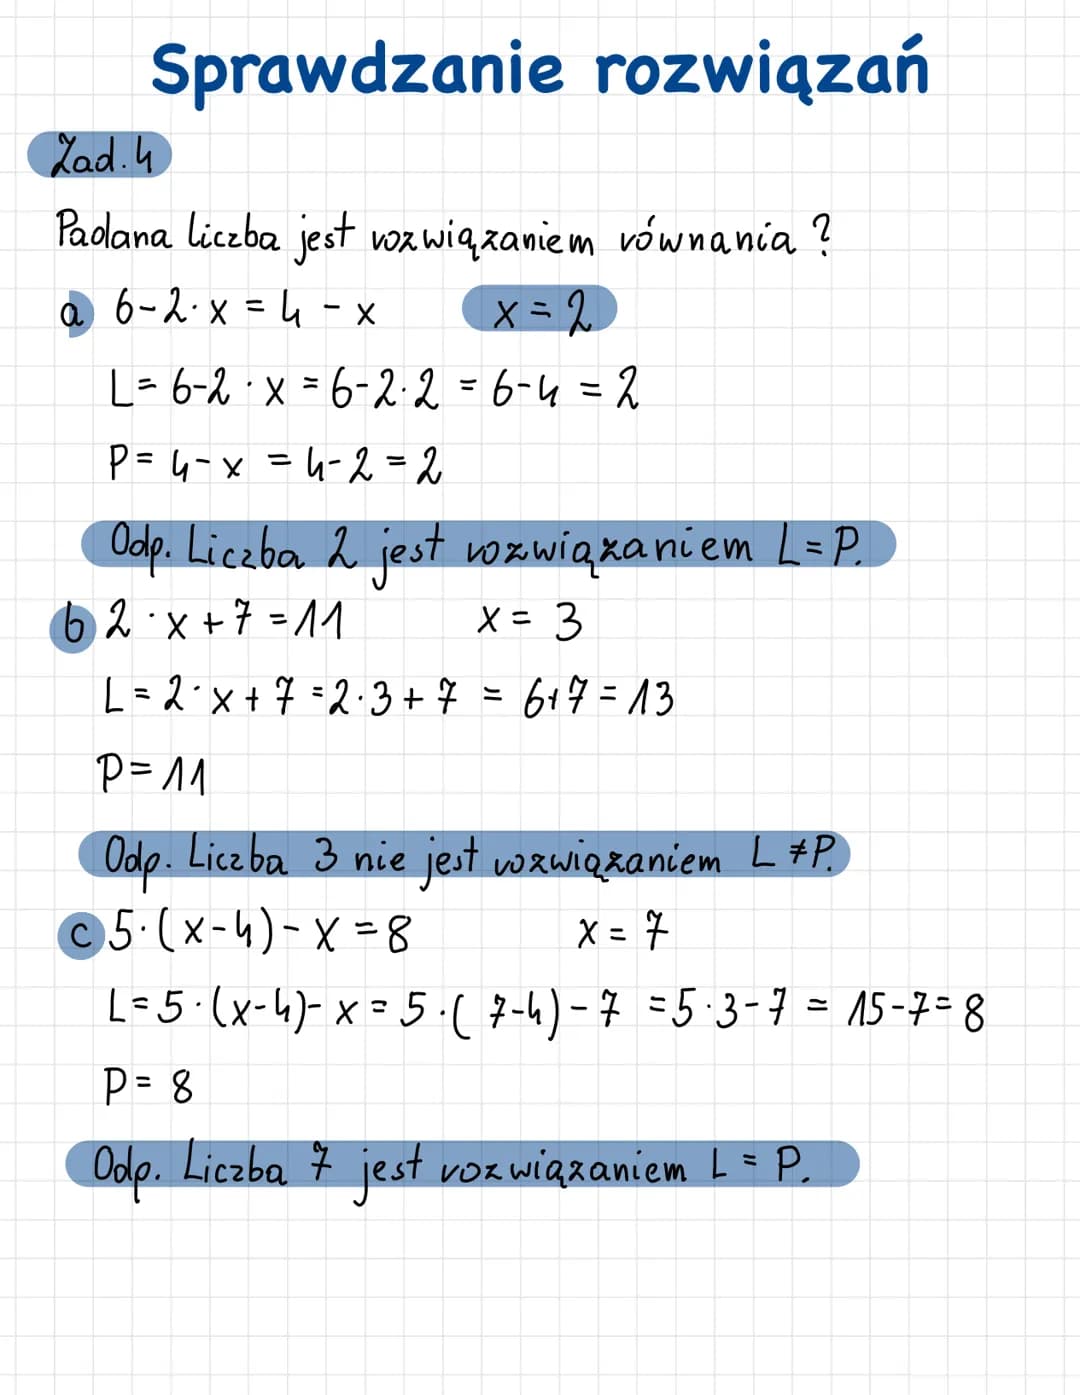 Sprawdzanie rozwiązań
Zad. 4
Padana liczba jest rozwiązaniem równania ?
a 6-2·x = 4 - x x = 2
L= 6-2 · x = 6-2·2 = 6-4 = 2
P= 4-x = 4-2 = 2
Odp. Liczba 2 jest rozwiązaniem L = P.
b 2 · x + 7 = 11 x = 3
L = 2 · x + 7 = 2·3 + 7 = 6+7 = 13
P = 11
Odp. Liczba 3 nie jest rozwiązaniem L ≠ P.
c 5·(x-4) - x = 8 x = 7
L = 5 ·(x-4)- x = 5 ·( 7-4) - 7 = 5·3-7 = 15-7= 8
P = 8
Odp. Liczba 7 jest rozwiązaniem L = P.